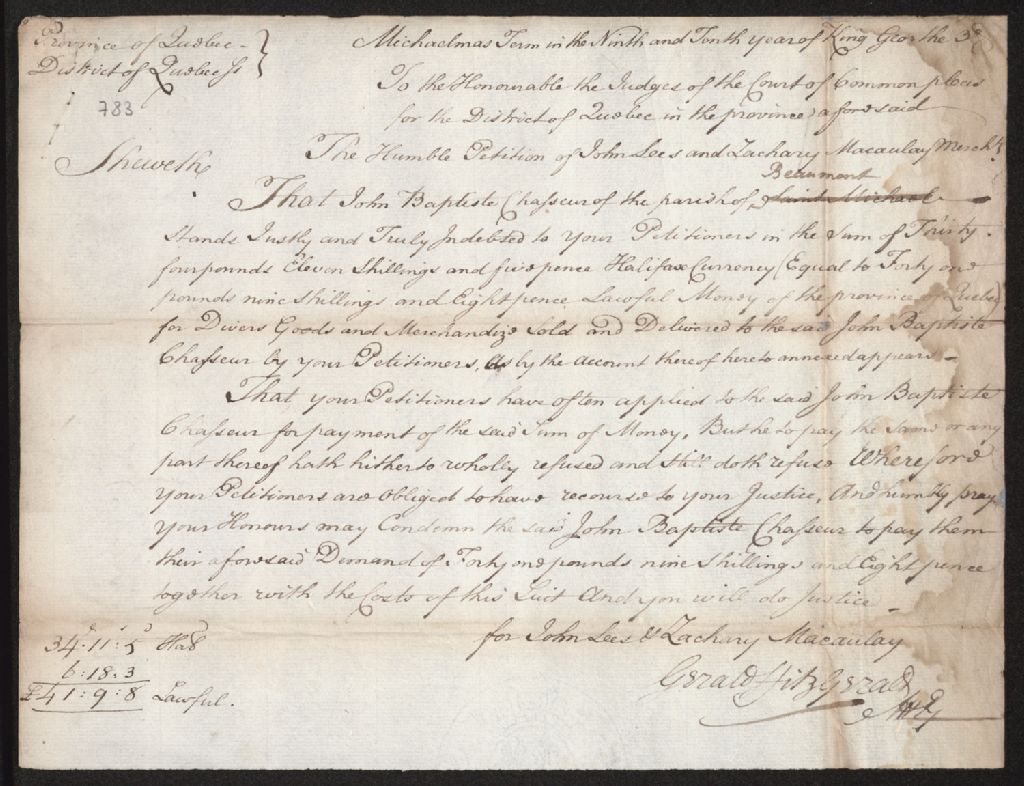 Province of Quebec
District of Quebec ss
783
Michaelmas Term in the Ninth and Tenth year of King George the 3d
To the Honourable the Judges of the Court of Common pleas
for the District of Quebec in the province aforesaid
The Humble Petition of John Lees and Zachary Macaulay Mercht
Sheweth
Beaumont
That John Baptiste Chasseur of the parish of Saint Michael
Stands Justly and Truly Indebted to your Petitioners in the Sum of Thirty
four pounds Eleven Shillings and five pence Halifax Currency (Equal to Forty one
pounds nine Shillings and Eight pence Lawful Money of the province of Quebec)
for Divers Goods and Merchandize Sold and Delivered to the said John Baptiste
Chasseur by your Petitioners, as by the Account thereof hereto annexed appears
That your Petitioners have often applied to the said John Baptiste
Chasseur for payment of the said Sum of Money, But he to pay the Same or any
part thereof hath hitherto wholly refused and Still doth refuse Wherefore
your Petitioners are Obliged to have recourse to your Justice, And humbly pray
your Honours may Condemn the said John Baptiste Chasseur to pay them
their aforesaid Demand of Forty one pounds nine Shillings and Eight pence
together with the Costs of this Suit And you will do Justice
for John Lees & Zachary Macaulay
Gerald FitzGerald
Atty
34.11.5 Hal
6:18.3
£41:9:8 Lawful.